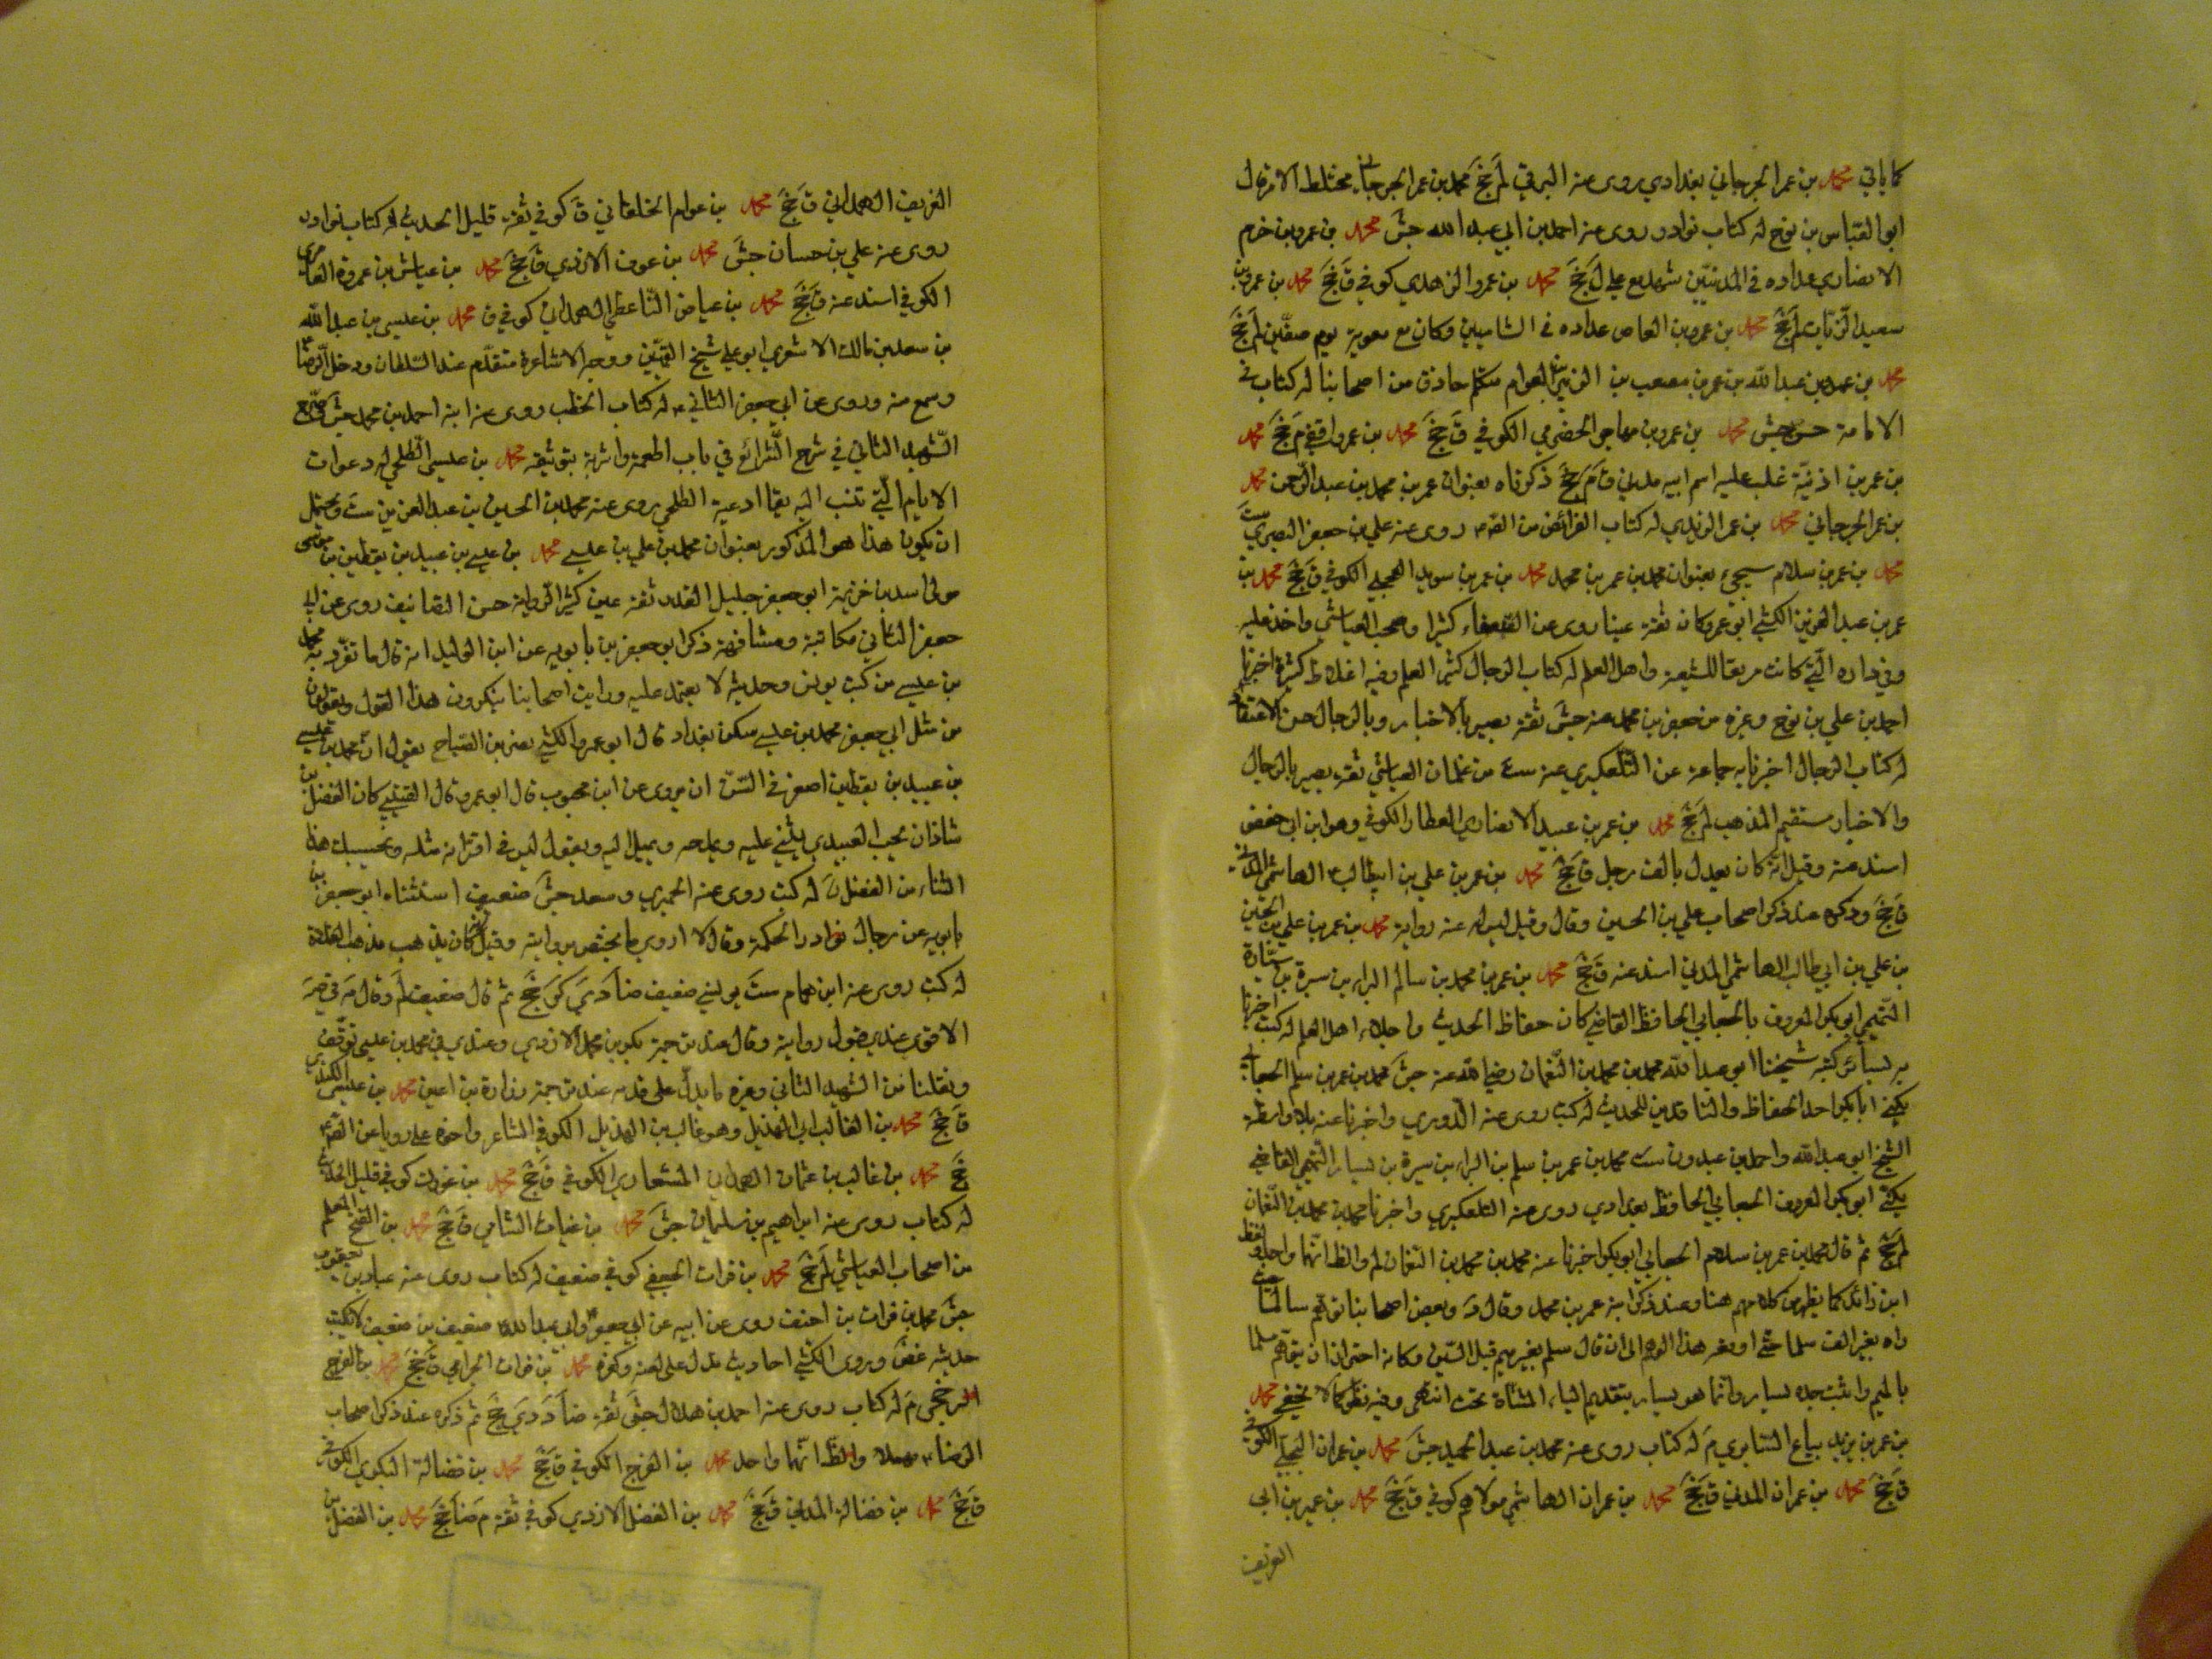 كما ياتي محمد بن عمر الجرجاني بغدادي يروى عنه البرقي لم جخ محمد بن عمر الجرجاني مختلط الامر قال
ابو العباس بن نوح له كتاب نوادر روى عنه احمد بن ابي عبد الله جش محمد بن عمرو بن حزم
الانصاري عداده في المدنيين شهد مع علي ل جخ محمد بن عمرو الزهدي كوفي ق جخ محمد بن عمرو بن
سعيد الزيات لم جخ محمد بن عمرو بن العاص عداده في الشاميين وكان مع معوية يوم صفين لم جخ
محمد بن عمرو بن عبد الله بن عمر بن مصعب بن الزبير بن العوام متكلم حاذق من اصحابنا له كتاب في
الامامة حسن جش محمد بن عمرو بن مهاجر الحضرمي الكوفي ق جخ محمد بن عمرو واقفي م جخ محمد
بن عمر بن اذنية غلب عليه اسم ابيه مدني ق م جخ ذكرناه بعنوان عمر بن محمد بن عبد الرحمن محمد
بن عمر الجرجاني محمد بن عمر الزيدي له كتاب الفرائض من روى عنه علي بن جعفر البصري ست
محمد بن عمر بن سلام سيجيء بعنوان محمد بن عمر بن محمد محمد بن عمر بن سويد العجلي الكوفي ق جخ محمد بن
عمر بن عبد العزيز الكشي ابو عمرو كان ثقة عينا روى عن الضعفاء كثيرا وصحب العياشي واخذ عليه
وفي داره التي كانت مربعا للشيعة واهل العلم له كتاب الرجال كثير العلم وفيه اغلاط كثيرة اخبرنا
احمد بن علي بن نوح وغيره من جعفر بن محمد عنه جش ثقة بصير بالاخبار وبالرجال حسن الاعتقاد
له كتاب الرجال اخبرنا به جماعة عن التلعكبري عنه ست من غلمان العياشي ثقة بصير بالرجال
والاخبار مستقيم المذهب لم جخ محمد بن عمر بن عبيد الانصاري العطار الكوفي وهو ابن ابي حفص
اسند عنه وقيل انه كان يعدل بالف رجل ق جخ محمد بن عمر بن علي بن ابيطالب الهاشمي المدني
ق جخ وذكره عند ذكر اصحاب علي بن الحسين وقال وقيل ليس له عنه رواية محمد بن عمر بن علي بن الحسين
بن علي بن ابي طالب الهاشمي المدني اسند عنه ق جخ محمد بن عمر بن محمد بن سالم البراء بن سبرة بن سيارة
التميمي ابو بكر المعروف بالجعابي الحافظ القاضي كان حفاظ الحديث واجلاء اهل العلم له كتب اخبرنا
به بسائر كتبه شيخنا ابو عبد الله محمد بن محمد بن النعمان رضي الله عنه جش محمد بن عمر بن سلم الجعابي
يكنى ابا بكر احد الحفاظ والناقدين للحديث له كتب روى عنه الدوري واخبرنا عنه بلا واسطة
الشيخ ابو عبد الله واحمد بن عبدون ست محمد بن عمر بن سلم بن البراء بن سبرة بن يسار التميمي القاضي
يكنى ابو بكر المعروف الجعابي الحافظ بغدادي روى عنه التلعكبري واخبرنا محمد بن محمد بن النعمان
لم جخ ثم قال محمد بن عمر بن سلام الجعابي ابو بكر اخبرنا عنه محمد بن محمد بن النعمان لم والظ انهما واحد ولفظ
ابن زائد كما يظهر من كلامهم هنا وعند ذكر ابنه عمر بن محمد وقال د وبعض اصحابنا توهم سالما حيث
راه بغير الف سلما حتى هذا الوهم الى ان قال سلم بغير ميم قبل السين وكانه احترز ان يتوهم سلما
بالميم واثبت جده يسار وانما هو يسار بتقديم الياء المثناة تحت انتهى وفيه نظر كما لا يخفى محمد
بن عمر بن يزيد بياع السابري م له كتاب روى عنه محمد بن عبد الحميد جش محمد بن عمران البجلي الكوفي
ق جخ محمد بن عمران المدني ق جخ محمد بن عمران الهاشمي مولاهم كوفي ق جخ محمد بن عمير بن ابي
العريف
العريف الهمداني ق جخ محمد بن عوام الخلقاني ق كوفي ثقة قليل الحديث له كتاب نوادر
روى عنه علي بن حسان جش محمد بن عوف الازدي ق جخ محمد بن عياش بن عمروة العامري
الكوفي اسند عنه ق جخ محمد بن عياض الناعطي الهمداني كوفي ق محمد بن عيسى بن عبد الله
بن سعد بن مالك الاشعري ابو علي شيخ القميين ووجه الاشاعرة متقدم عند السلطان ودخل الرضا
وسمع منه وروى عن ابي جعفر الثاني له كتاب الخطب روى عنه ابنه احمد بن محمد جش
الشهيد الثاني في شرح الشرائع في باب اطعمة واشربة بتوثيقه محمد بن عيسى الطلحي له دعوات
الايام التي تنسب اليه يقال ادعية الطلحي روى عنه محمد بن الحسين بن عبد العزيز ست ويحتمل
ان يكون هذا هو المذكور بعنوان محمد بن علي بن عيسى محمد بن عيسى بن عبيد بن يقطين بن موسى
مولى اسد بن خزيمة ابو جعفر جليل القدر ثقة عين كثير الرواية حسن التصانيف روى عن ابي
جعفر الثاني مكاتبة ومشافهة ذكر ابو جعفر بن بابويه عن ابن الوليد انه قال ما تفرد به محمد
بن عيسى من كتب يونس وحديثه لا يعتمد عليه ورايت اصحابنا ينكرون هذا القول ويقولون
من مثل ابي جعفر محمد بن عيسى سكن بغداد قال ابو عمرو الكشي نصر بن الصباح يقول ان محمد بن عيسى
بن عبيد بن يقطين اصغر في السن ان يروى عن ابن محبوب قال ابو عمرو قال القتيبي كان الفضل بن
شاذان يحب العبيدي يثني عليه ويمدحه ويميل اليه ويقول ليس في اقرانه مثله وبحسبك هذا
الثناء من الفضل له كتب روى عنه الحميري وسعد جش ضعيف استثناه ابو جعفر بن
بابويه عن رجال نوادر الحكمة وقال لا اروي ما يختص بروايته وقيل انه كان يذهب مذهب الغلاة
له كتب روى عنه ابن همام ست يونسي ضعيف ضا دي كر جخ ثم قال ضعيف لم وقال
الاقوى عندي قبول روايته وقال عند ترجمة بكر بن محمد الازدي وعندي في محمد بن عيسى توقف
ونقلنا من الشهيد الثاني وغيره ما يدل على قدمه عند ترجمة زرارة بن اعين محمد بن عيسى الكندي
ق جخ محمد بن الغالب ابي الهذيل وهو غالب بن الهذيل الكوفي الشاعر واخوه علي رويا عن
جخ محمد بن غالب بن عثمان الهمداني المشعاري الكوفي ق جخ محمد بن غورك كوفي قليل الحديث
له كتاب روى عنه ابراهيم بن سليمان جش محمد بن غياث الشامي ق جخ محمد بن الفتح المعلم
من اصحاب العياشي لم جخ محمد بن فرات الجعفي كوفي ضعيف له كتاب روى عنه عباد بن يعقوب
جش محمد بن فرات بن احنف روى عن ابيه عن ابي جعفر وابي عبد الله ضعيف بن ضعيف لا يكتب
حديثه غض وروى الكشي احاديث تدل على لعنه وكفره محمد بن فرات الجرامي ق جخ محمد بن الفرج
الرخجي م له كتاب روى عنه احمد بن هلال جش ثقة ضا د دي جخ ثم ذكره عند ذكر اصحاب
الرضا مهملا والظ انهما واحد محمد بن الفرج الكوفي ق جخ محمد بن فضالة البكري الكوفي
ق جخ محمد بن فضالة المدني ق جخ محمد بن الفضل الازدي كوفي ثقة م ضا جخ محمد بن الفضل بن